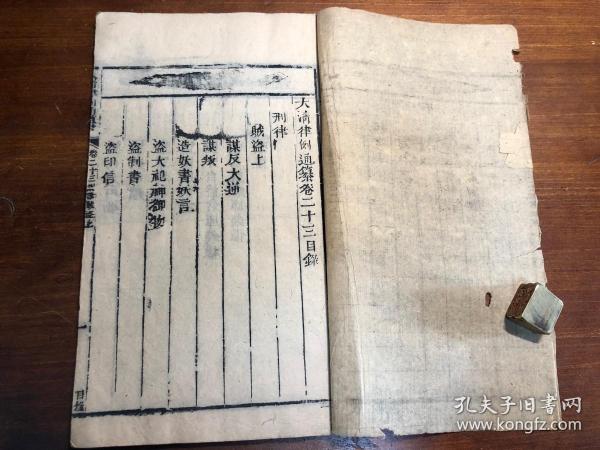 大清律例通纂卷二十三目錄
刑律
賊盜上
謀反大逆
謀叛
造妖書妖言
盜大祀神御物
盜制書
盜印信
卷二十三
目錄
孔夫子旧书网
www.kongfz.com